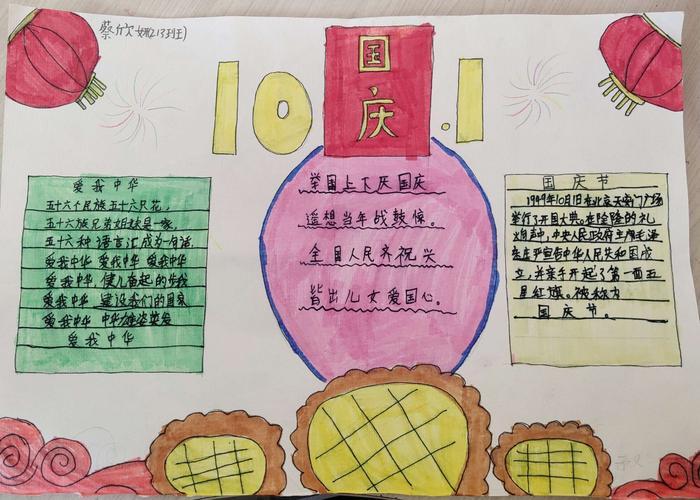 蔡欣娜(213班)
国庆
10.1
爱我中华
五十六个民族五十六只花,
五十六族兄弟姐妹是一家,
五十六种语言汇成为一句话,
爱我中华 爱我中华 爱我中华
爱我中华,健儿奋起的步我
爱我中华 建设我们的国家
爱我中华 中华雄姿英发
爱我中华
举国上下庆国庆
遥想当年战鼓催。
全国人民齐祝兴
皆出儿女爱国心。
国庆节
1949年10月1日在北京天安门广场
举行了开国大典。在隆隆的礼
炮声中,中央人民政府主席毛泽
东庄严宣告中华人民共和国成
立,并亲手升起了第一面五
星红旗。被称为
国庆节。